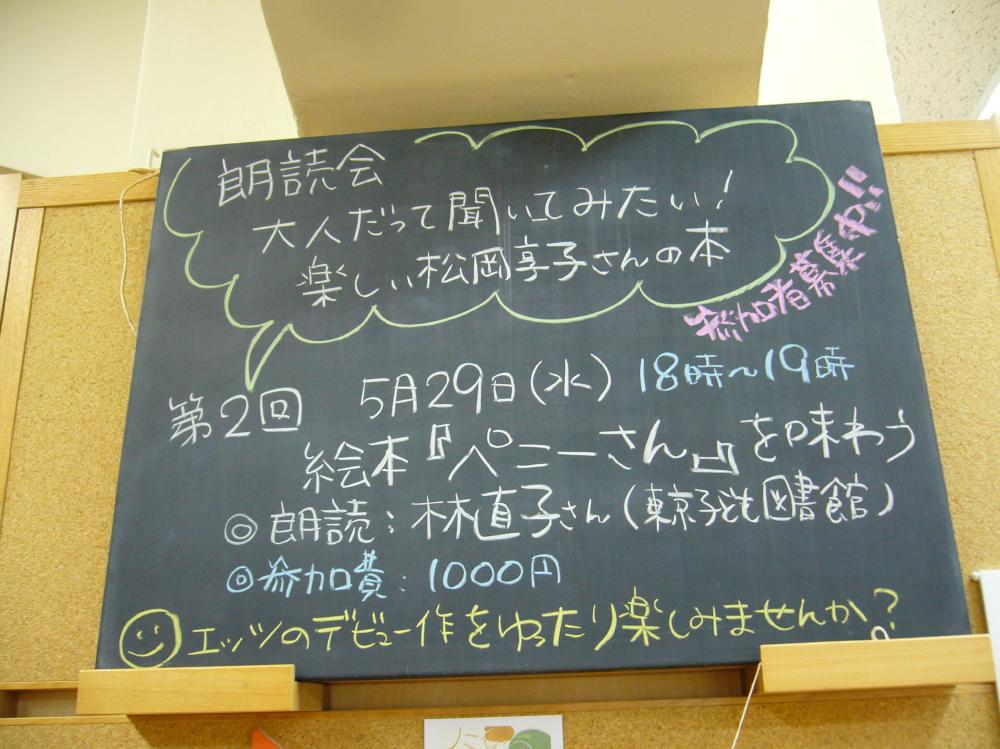 朗読会
大人だって聞いてみたい!
楽しい松岡享子さんの本
参加者募集中!!
第2回 5月29日(水) 18時~19時
絵本『ペニーさん』を味わう
◎朗読:林直子さん(東京子ども図書館)
◎参加費:1000円
エッツのデビュー作をゆったり楽しみませんか?